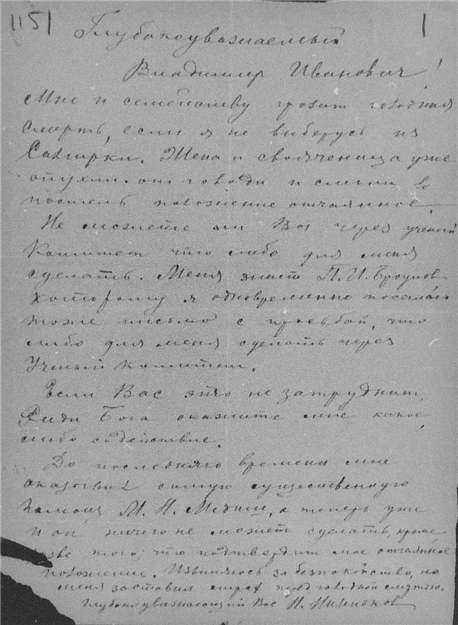 1151 1
Глубокоуважаемый
Владимир Иванович!
Мне и семейству грозит голодная
смерть, если я не выберусь из
Жена и свояченица уже
опухли от голода и слегли в
постель положение отчаянное.
Не можете ли Вы через ученый
Комитет что либо для меня
сделать. Меня знает П. И. Броунов
которому я одновременно посылаю
тоже письмо с просьбой, что
либо для меня сделать через
Ученый Комитет.
Если Вас это не затруднит,
Ради Бога окажите мне какое
либо содействие.
До последняго времени мне
оказывал самую существенную
помощь М. Н. а теперь уже
и он ничего не может сделать, кроме
разве того, что подтвердит мое отчаянное
положение. Извиняюсь за безпокойство, но
меня заставил страх перед голодной смертью.
Глубокоуважающий Вас Н.